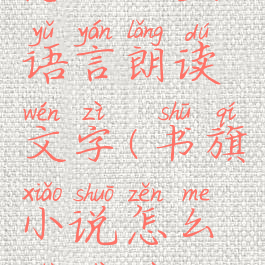 yǔ yán lǎng dú
语言朗读
wén zì shū qí
文字(书旗
xiǎo shuō zěn me
小说怎么